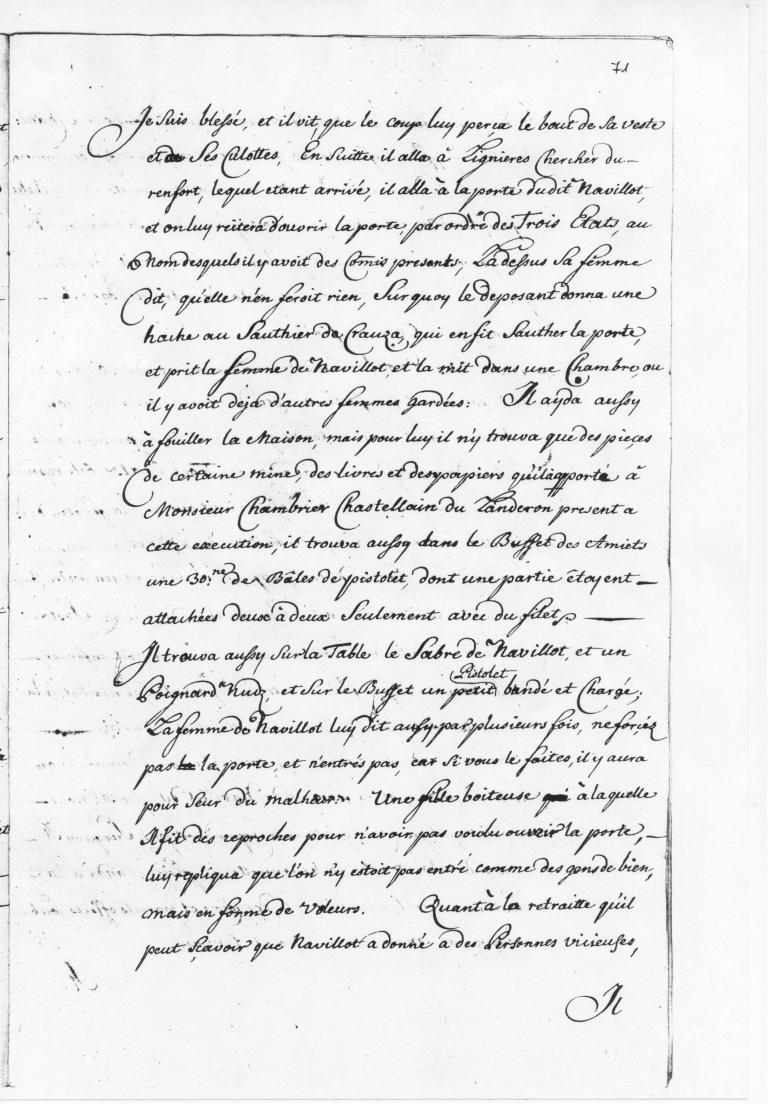 71
Je suis blessé, et il vit, que le coup luy perça le bout de sa veste
et de Ses Culottes, En suitte il alla à Lignieres Chercher du
renfort, lequel etant arrivé, il alla à la porte du dit Navillot,
et on luy reïtera d'ouvrir la porte, par ordre des Trois Etats, au
Nom desquels il y avoit des Comis presents, La dessus sa femme
dit, qu'elle n'en feroit rien, Sur quoy le deposant donna une
hache au Sauthier de Crauza, qui en fit Sauther la porte,
et prit la femme de Navillot, et la mit dans une Chambre, ou
il y avoit deja d'autres femmes gardées: Il ayda aussy
à fouiller la Maison, mais pour luy il n'y trouva que des pieces
de certaine mine, des livres et des papiers qu'il apporté à
Monsieur Chambrier Chastellain du Landeron present a
cette execution, il trouva aussy dans le Buffet des Amiets
une 30.ne de Bâles de pistolet, dont une partie étoyent
attachées deux à deux Seulement avec du filet.
Il trouva aussy Sur la Table le Sabre de Navillot, et un
Poignard Nud, et sur le Buffet un petit Pistolet bandé et Chargé;
La femme de Navillot luy dit aussy par plusieurs fois, ne forcéz
pas la porte, et n'entrés pas, car si vous le faites, il y aura
pour Seur du malheur. Une fille boiteuse à laquelle
Il fit des reproches pour n'avoir pas voulu ouvrir la porte,
luy repliqua que l'on n'y estoit pas entré comme des gens de bien,
mais en forme de Voleurs. Quant à la retraitte qu'il
peut sçavoir que Navillot a donné à des Personnes vicieuses,
Il